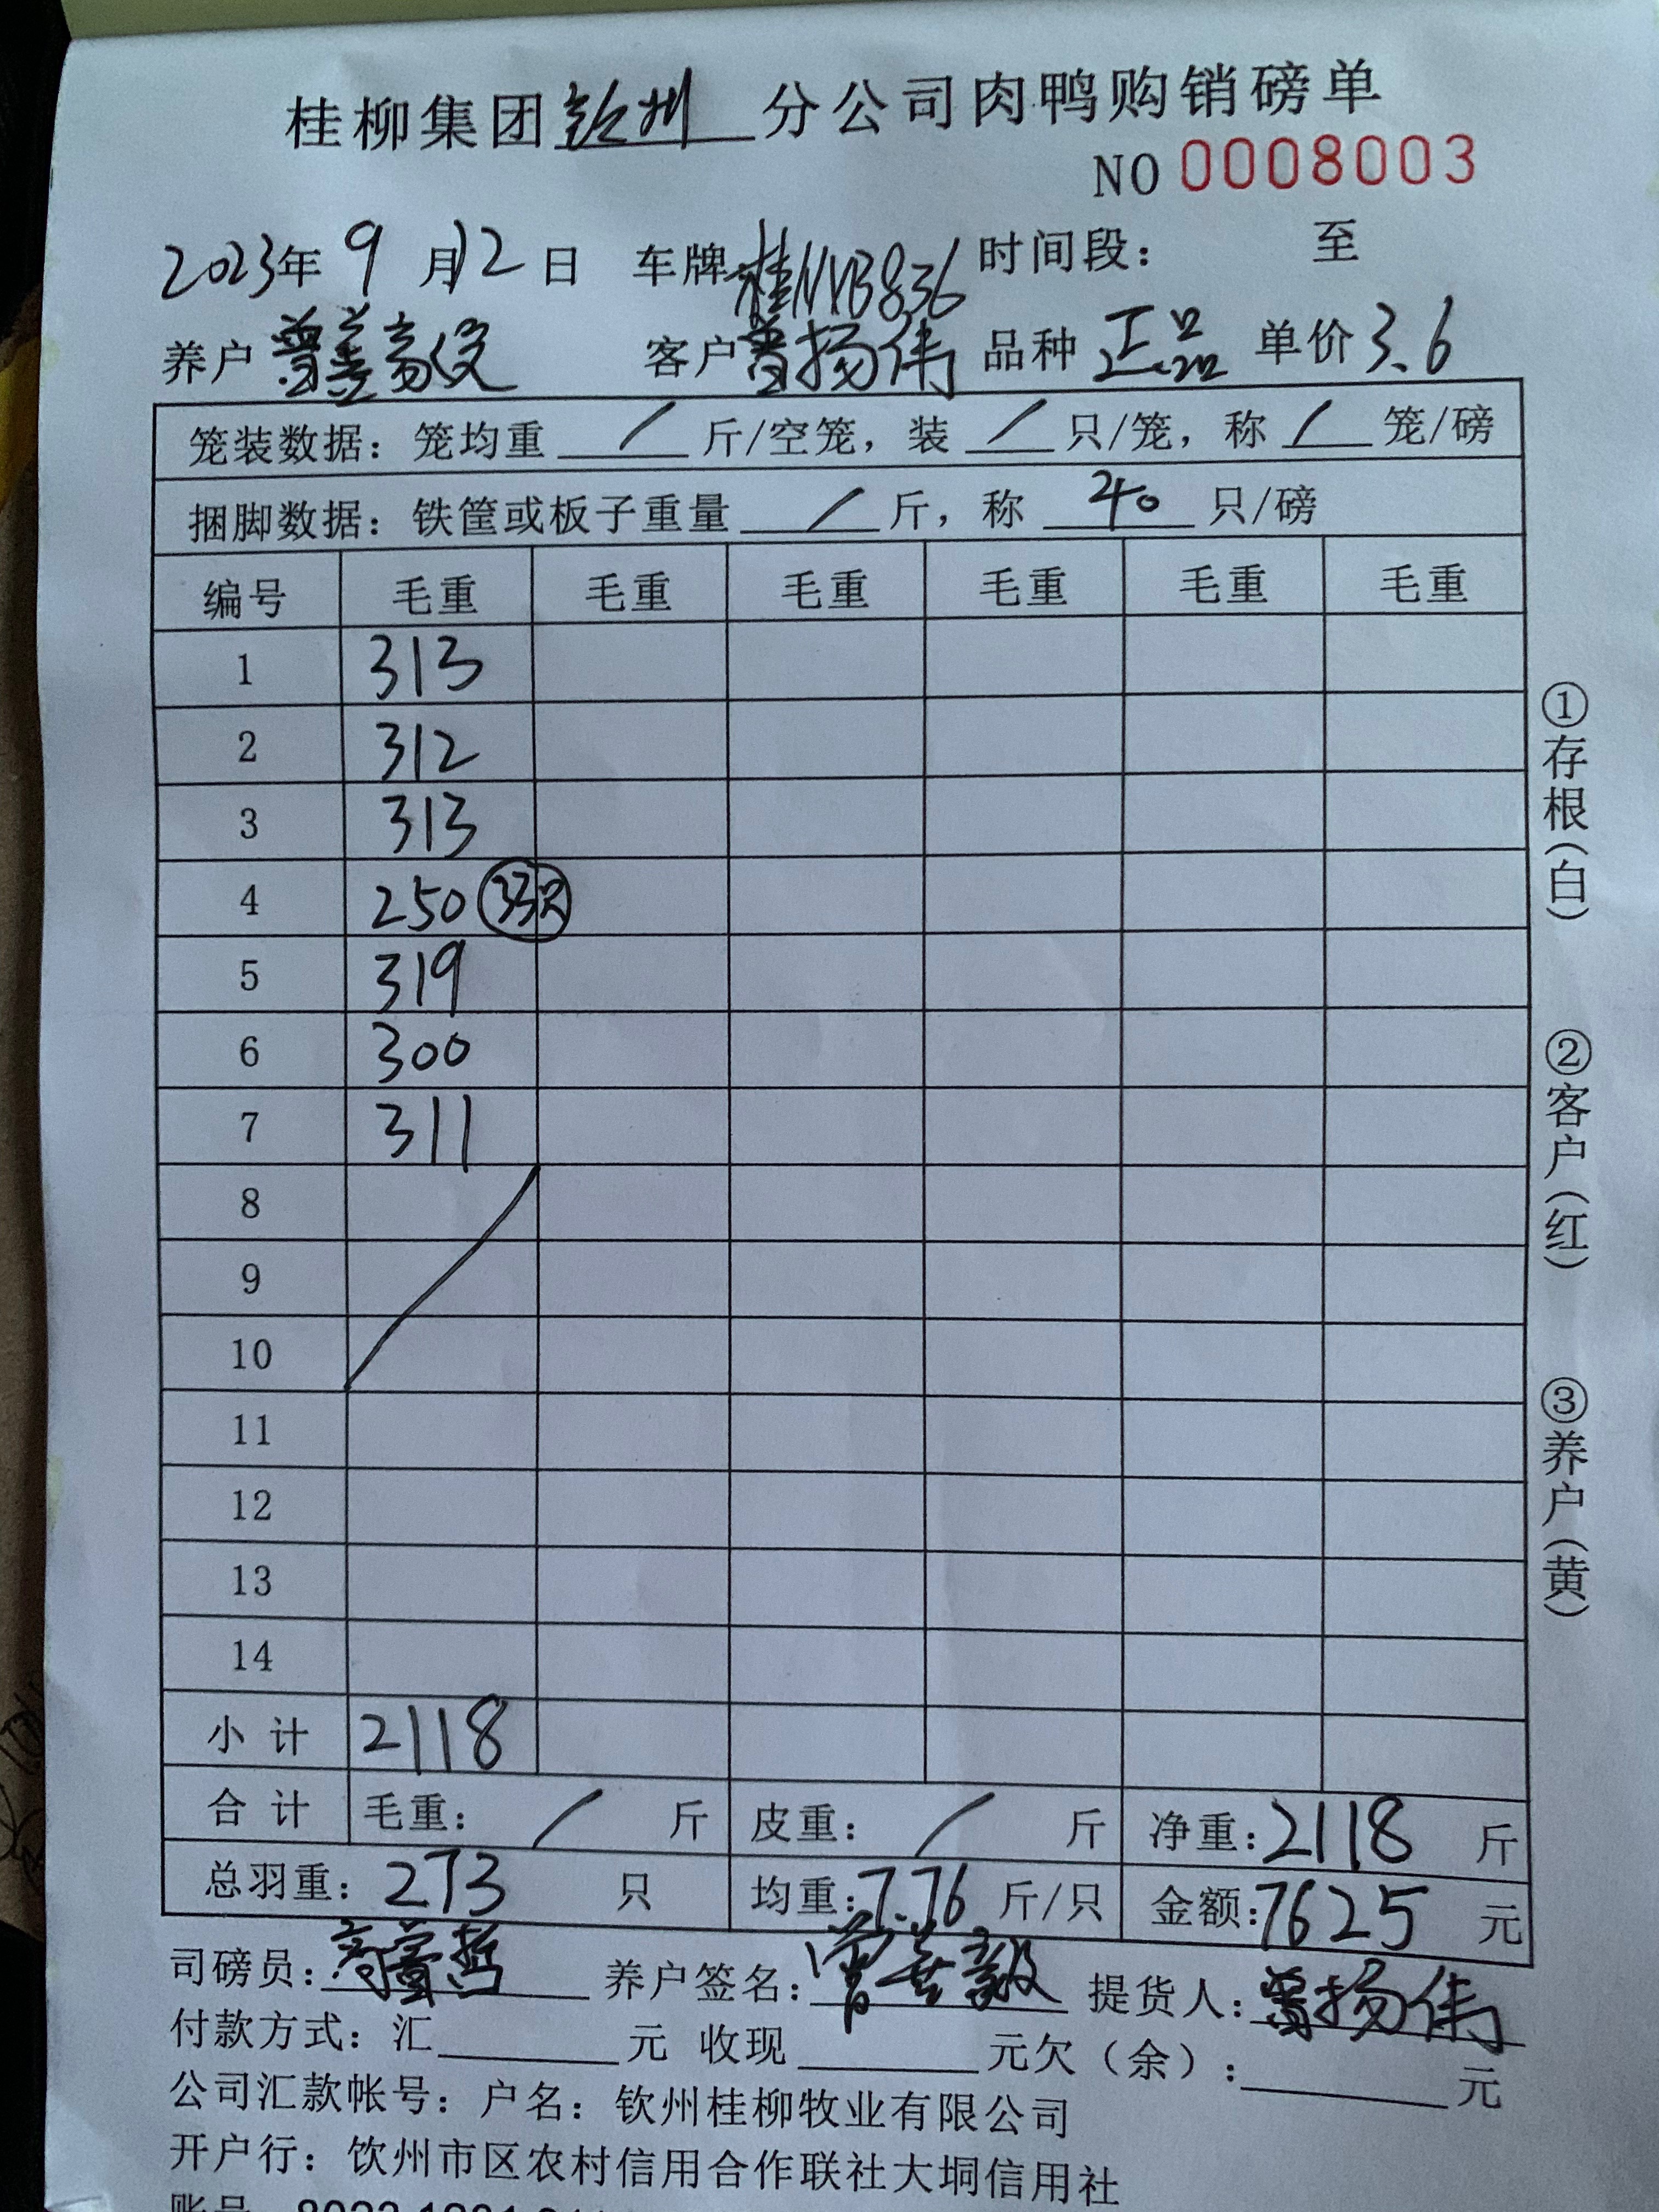 桂柳集团钦州分公司肉鸭购销磅单
NO 0008003
2023年 9 月 12 日 车牌 桂NYB836 时间段: 至
养户 曾善 客户 曾扬伟 品种 正品 单价 3.6
笼装数据: 笼均重 / 斤/空笼, 装 / 只/笼, 称 / 笼/磅
捆脚数据: 铁筐或板子重量 / 斤, 称 40 只/磅
编号 毛重 毛重 毛重 毛重 毛重 毛重
1 313
2 312
3 313
4 250 33只
5 319
6 300
7 311
8
9
10
11
12
13
14
小计 2118
合计 毛重: / 斤 皮重: / 斤 净重: 2118 斤
总羽重: 273 只 均重: 7.76 斤/只 金额: 7625 元
司磅员: 养户签名: 曾 提货人: 曾扬伟
付款方式: 汇 元 收现 元欠(余): 元
公司汇款帐号: 户名: 钦州桂柳牧业有限公司
开户行: 钦州市区农村信用合作联社大垌信用社
①存根(白)
②客户(红)
③养户(黄)